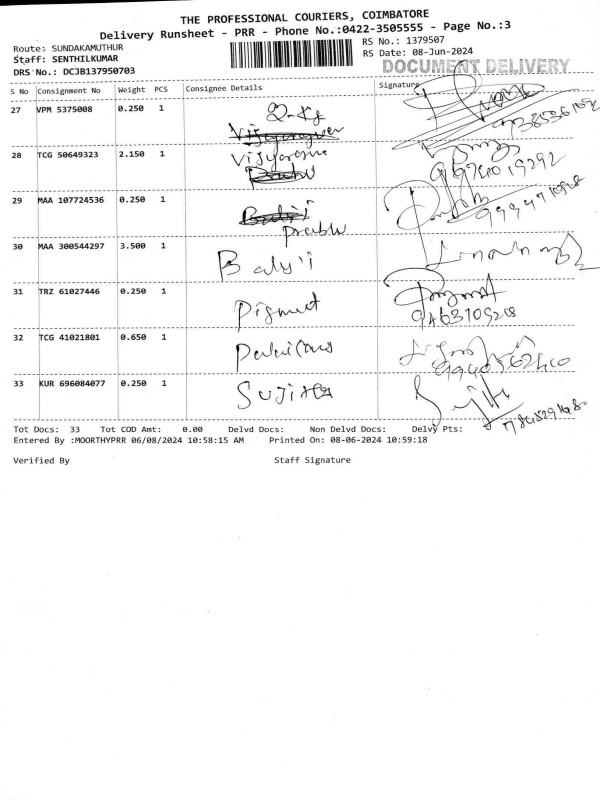 THE PROFESSIONAL COURIERS, COIMBATORE
Delivery Runsheet - PRR - Phone No.:0422-3505555 - Page No.:3
Route: SUNDAKAMUTHUR
RS No.: 1379507
Staff: SENTHILKUMAR
RS Date: 08-Jun-2024
DRS No.: DCJB137950703
DOCUMENT DELIVERY
S No Consignment No Weight PCS Consignee Details Signature
27 VPM 5375008 0.250 1
28 TCG 50649323 2.150 1
29 MAA 107724536 0.250 1 Prabhu
30 MAA 300544297 3.500 1 Balaji
31 TRZ 61027446 0.250 1
32 TCG 41021801 0.650 1
33 KUR 696084077 0.250 1 SUJITHA
Tot Docs: 33 Tot COD Amt: 0.00 Delvd Docs: Non Delvd Docs: Delvy Pts:
Entered By :MOORTHYPRR 06/08/2024 10:58:15 AM Printed On: 08-06-2024 10:59:18
Verified By Staff Signature